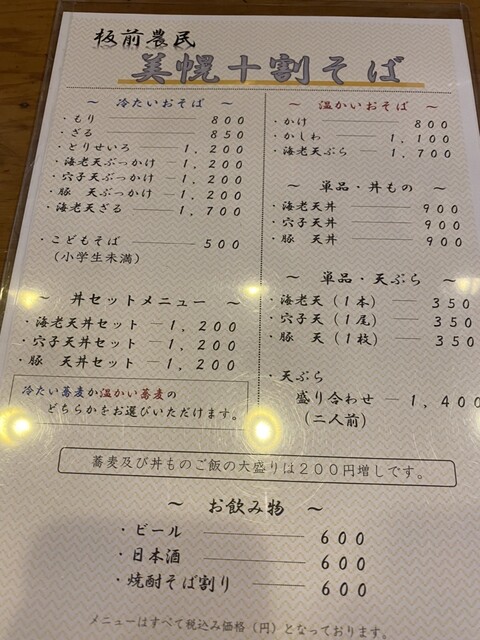 板前農民
美幌十割そば
～ 冷たいおそば ～
・もり 800
・ざる 850
・とりせいろ 1,200
・海老天ぶっかけ 1,200
・穴子天ぶっかけ 1,200
・豚 天ぶっかけ 1,200
・海老天ざる 1,700
・こどもそば 500
(小学生未満)
～ 丼セットメニュー ～
・海老天丼セット 1,200
・穴子天丼セット 1,200
・豚 天丼セット 1,200
冷たい蕎麦か温かい蕎麦の
どちらかをお選びいただけます。
～ 温かいおそば ～
・かけ 800
・かしわ 1,100
・海老天ぷら 1,700
～ 単品・丼もの ～
・海老天丼 900
・穴子天丼 900
・豚 天丼 900
～ 単品・天ぷら ～
・海老天(1本) 350
・穴子天(1尾) 350
・豚 天(1枚) 350
・天ぷら
盛り合わせ 1,400
(二人前)
蕎麦及び丼ものご飯の大盛りは200円増しです。
～ お飲み物 ～
・ビール 600
・日本酒 600
・焼酎そば割り 600
メニューはすべて税込み価格(円)となっております。